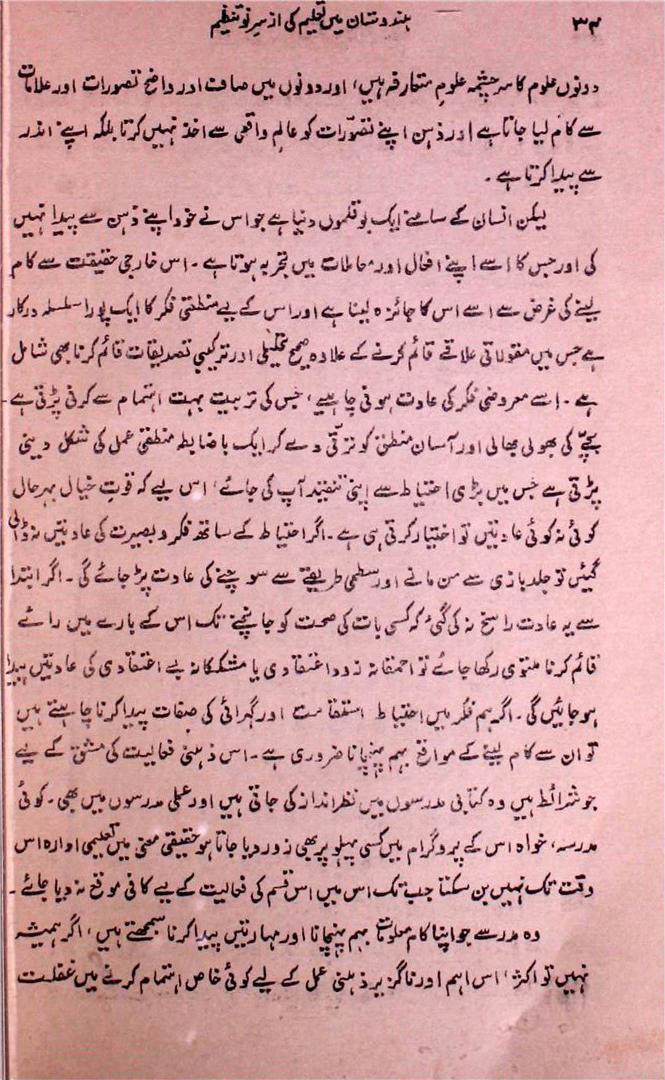 ۳۴
ہندوستان میں تعلیم کی از سرِ نو تنظیم
دونوں علوم کا سرچشمہ علومِ متعارفہ ہیں، اور دونوں میں صاف اور واضح تصورات اور علامات
سے کام لیا جاتا ہے اور ذہن اپنے تصوّرات کو عالمِ واقعی سے اخذ نہیں کرتا بلکہ اپنے اندر
سے پیدا کرتا ہے۔
لیکن انسان کے سامنے ایک بوقلموں دنیا ہے جو اس نے خود اپنے ذہن سے پیدا نہیں
کی اور جس کا اسے اپنے افعال اور معاملات میں تجربہ ہوتا ہے۔ اس خارجی حقیقت سے کام
لینے کی غرض سے اسے اس کا جائزہ لینا ہے اور اس کے لیے منطقی فکر کا ایک پورا سلسلہ درکار
ہے جس میں مقولاتی علاقے قائم کرنے کے علاوہ صحیح تحلیلی اور ترکیبی تصدیقات قائم کرنا بھی شامل
ہے۔ اسے معروضی فکر کی عادت ہونی چاہیے، جس کی تربیت بہت اہتمام سے کرنی پڑتی ہے۔
بچّے کی بھولی بھالی اور آسان منطق کو ترقّی دے کر ایک باضابطہ منطقی عمل کی شکل دینی
پڑتی ہے جس میں بڑی احتیاط سے اپنی تنقید آپ کی جائے، اس لیے کہ قوتِ خیال بہرحال
کوئی نہ کوئی عادتیں تو اختیار کرتی ہی ہے۔ اگر احتیاط کے ساتھ فکر و بصیرت کی عادتیں نہ ڈالی
گئیں تو جلد بازی سے من مانے اور سطحی طریقے سے سوچنے کی عادت پڑ جائے گی۔ اگر ابتدا
سے یہ عادت راسخ نہ کی گئی کہ کسی بات کی صحت کو جانچنے تک اس کے بارے میں رائے
قائم کرنا ملتوی رکھا جائے تو احمقانہ زود اعتقادی یا مشککانہ بے اعتقادی کی عادتیں پیدا
ہو جائیں گی۔ اگر ہم فکر میں احتیاط استقامت اور گہرائی کی صفات پیدا کرنا چاہتے ہیں
تو ان سے کام لینے کے مواقع بہم پہنچانا ضروری ہے۔ اس ذہنی فعالیت کی مشق کے لیے
جو شرائط ہیں وہ کتابی مدرسوں میں نظر انداز کی جاتی ہیں اور عملی مدرسوں میں بھی۔ کوئی
مدرسہ، خواہ اس کے پروگرام میں کسی پہلو پر بھی زور دیا جاتا ہو حقیقی معنی میں تعلیمی ادارہ اس
وقت تک نہیں بن سکتا جب تک اس میں اس قسم کی فعالیت کے لیے کافی موقع نہ دیا جائے۔
وہ مدرسے جو اپنا کام معلومات بہم پہنچانا اور مہارتیں پیدا کرنا سمجھتے ہیں، اگر ہمیشہ
نہیں تو اکثر، اس اہم اور ناگزیر ذہنی عمل کے لیے کوئی خاص اہتمام کرنے میں غفلت